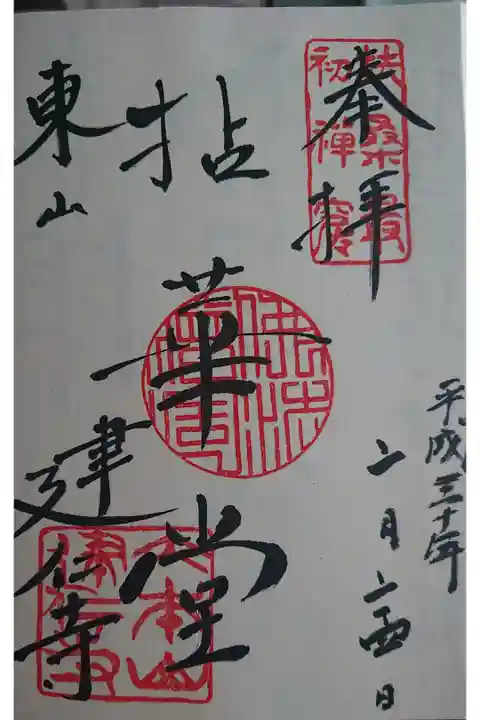 奉拝
扶桑最
初禅窟
平成三十年
二月二四日
拈華堂
東山
建仁寺
大本山
建仁寺